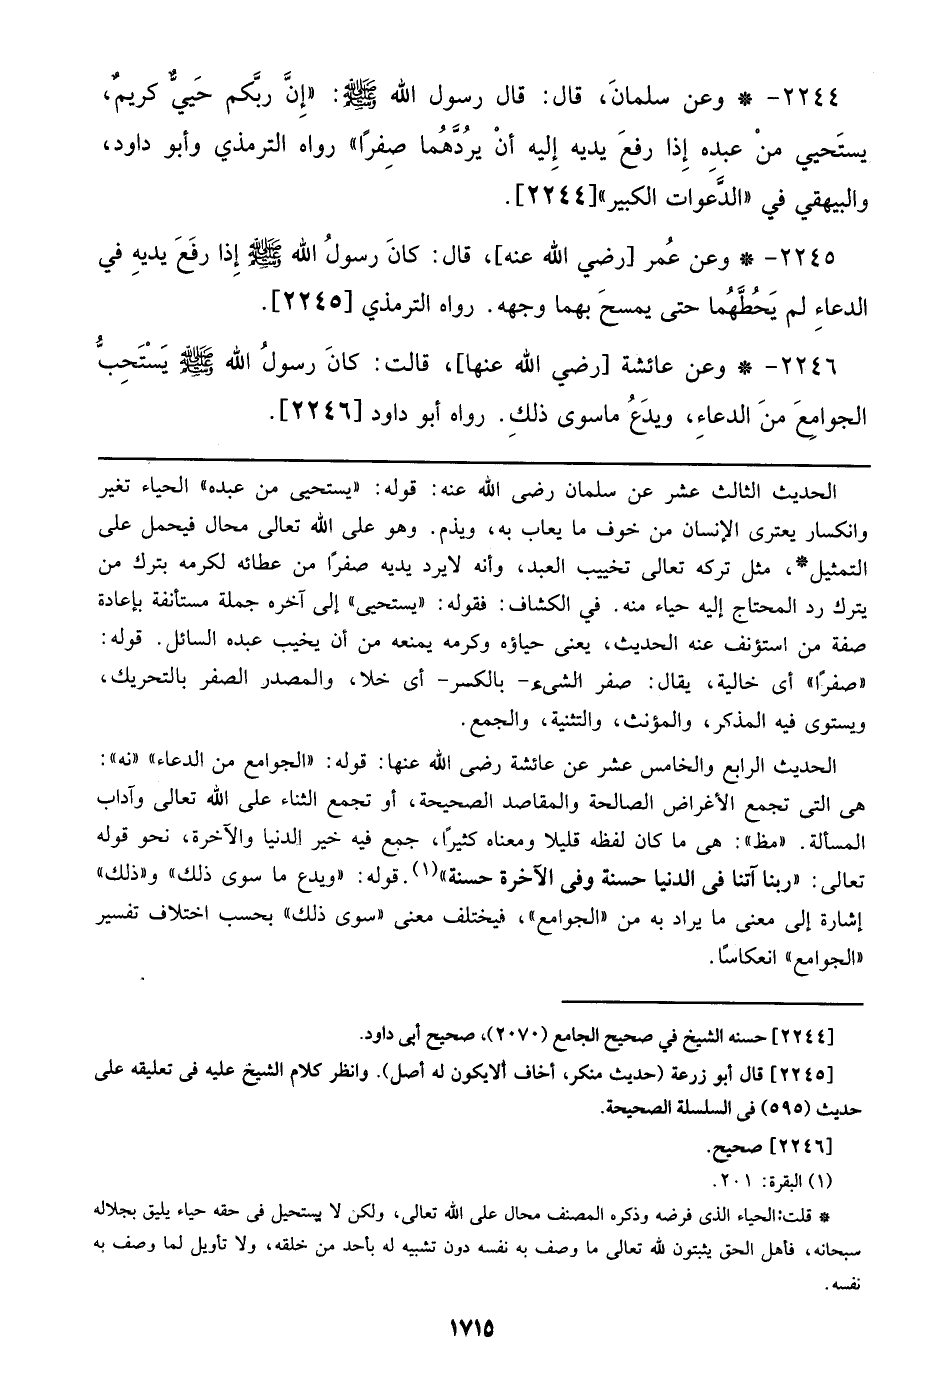 ٢٢٤٤- * وعن سلمانَ، قال: قال رسول الله ﷺ: «إِنَّ ربَّكم حَييٌّ كريمٌ،
يستَحيي منْ عبدِه إِذا رفعَ يديه إليه أنْ يردَّهُما صِفرًا» رواه الترمذي وأبو داود،
والبيهقي في «الدَّعوات الكبير»[٢٢٤٤].
٢٢٤٥- * وعن عُمر [رضي الله عنه]، قال: كانَ رسولُ الله ﷺ إِذا رفَعَ يديهِ في
الدعاءِ لم يَحُطَّهُما حتى يمسحَ بهما وجهه. رواه الترمذي [٢٢٤٥].
٢٢٤٦- * وعن عائشة [رضي الله عنها]، قالت: كانَ رسولُ الله ﷺ يَسْتَحِبُّ
الجوامِعَ منَ الدعاءِ، ويدَعُ ماسوى ذلكِ. رواه أبو داود [٢٢٤٦].
الحديث الثالث عشر عن سلمان رضى الله عنه: قوله: «يستحيى من عبده» الحياء تغير
وانكسار يعترى الإنسان من خوف ما يعاب به، ويذم. وهو على الله تعالى محال فيحمل على
التمثيل*، مثل تركه تعالى تخييب العبد، وأنه لايرد يديه صفرًا من عطائه لكرمه بترك من
يترك رد المحتاج إليه حياء منه. في الكشاف: فقوله: «يستحيى» إلى آخره جملة مستأنفة بإعادة
صفة من استؤنف عنه الحديث، يعنى حياؤه وكرمه يمنعه من أن يخيب عبده السائل. قوله:
«صفرًا» أى خالية، يقال: صفر الشىء- بالكسر- أى خلا، والمصدر الصفر بالتحريك،
ويستوى فيه المذكر، والمؤنث، والتثنية، والجمع.
الحديث الرابع والخامس عشر عن عائشة رضى الله عنها: قوله: «الجوامع من الدعاء» «نه»:
هى التى تجمع الأغراض الصالحة والمقاصد الصحيحة، أو تجمع الثناء على الله تعالى وآداب
المسألة. «مظ»: هى ما كان لفظه قليلا ومعناه كثيرًا، جمع فيه خير الدنيا والآخرة، نحو قوله
تعالى: «ربنا آتنا فى الدنيا حسنة وفى الآخرة حسنة»(١). قوله: «ويدع ما سوى ذلك» و«ذلك»
إشارة إلى معنى ما يراد به من «الجوامع»، فيختلف معنى «سوى ذلك» بحسب اختلاف تفسير
«الجوامع» انعكاسًا.
[٢٢٤٤] حسنه الشيخ في صحيح الجامع (٢٠٧٠)، صحيح أبى داود.
[٢٢٤٥] قال أبو زرعة (حديث منكر، أخاف ألايكون له أصل). وانظر كلام الشيخ عليه فى تعليقه على
حديث (٥٩٥) فى السلسلة الصحيحة.
[٢٢٤٦] صحيح.
(١) البقرة: ٢٠١.
* قلت:الحياء الذى فرضه وذكره المصنف محال على الله تعالى، ولكن لا يستحيل فى حقه حياء يليق بجلاله
سبحانه، فأهل الحق يثبتون لله تعالى ما وصف به نفسه دون تشبيه له بأحد من خلقه، ولا تأويل لما وصف به
نفسه.
١٧١٥